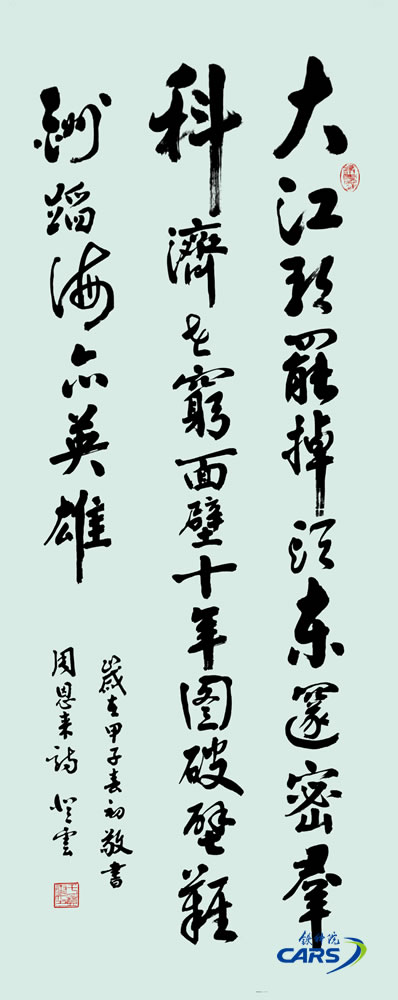 大江歌罷掉頭東邃密羣
科濟世窮面壁十年图破壁難
酬蹈海亦英雄
歲在甲子春初敬書
周恩来詩 雲
铁科院
CARS